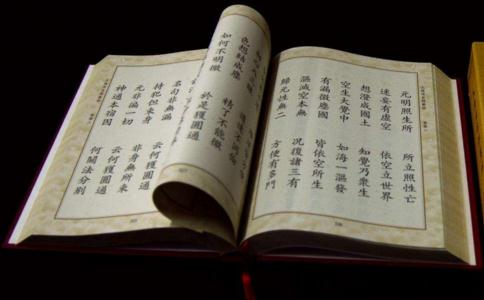 元明照生所 所立照性亡
迷妄有虛空 依空立世界
想澄成國土 知覺乃眾生
空生大覺中 如海一漚發
有漏微塵國 皆依空所生
漚滅空本無 況復諸三有
歸元性無二 方便有多門
色想結成塵 精了不能徹
如何不明徹 於是獲圓通
名句非無漏 云何獲圓通
持犯但束身 非身無所束
元非徧一切 云何獲圓通
神通本宿因 何關法分別